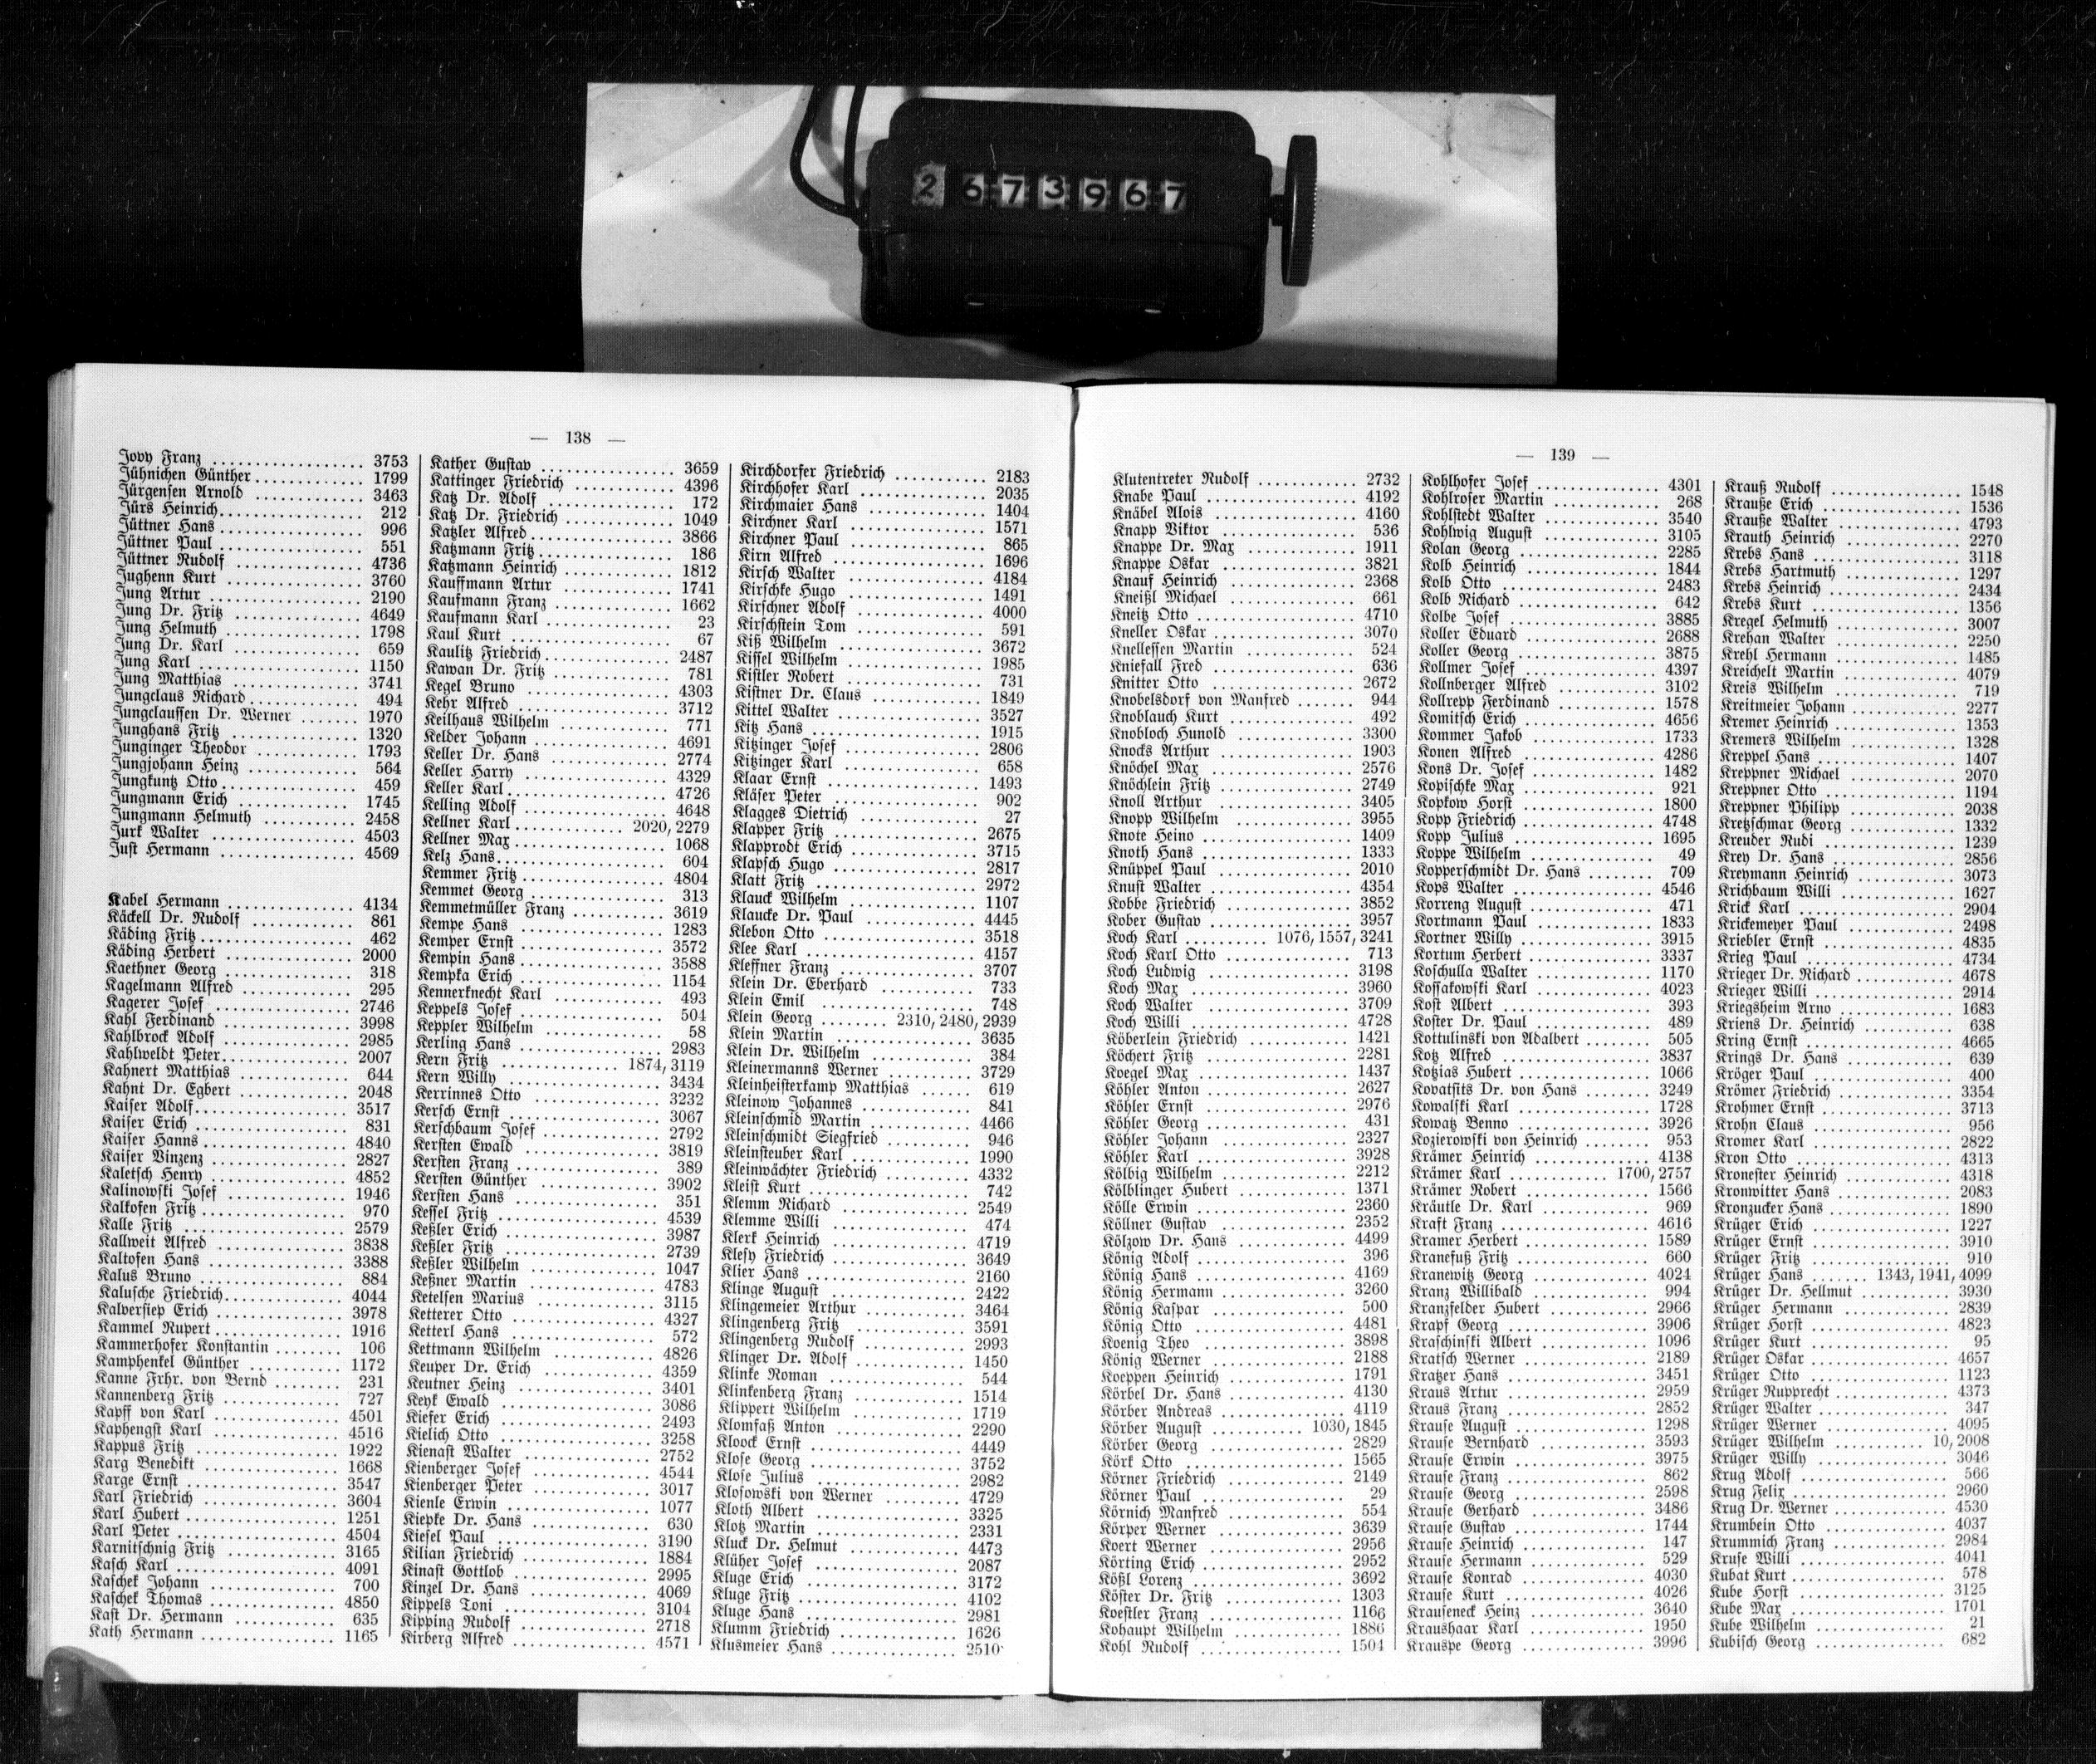 2 6 7 3 9 6 7
— 138 —
Jovy Franz 3753
Jühnichen Günther 1799
Jürgensen Arnold 3463
Jürs Heinrich 212
Jüttner Hans 996
Jüttner Paul 551
Jüttner Rudolf 4736
Jughenn Kurt 3760
Jung Artur 2190
Jung Dr. Fritz 4649
Jung Helmuth 1798
Jung Dr. Karl 659
Jung Karl 1150
Jung Matthias 3741
Jungclaus Richard 494
Jungclaussen Dr. Werner 1970
Junghans Fritz 1320
Junginger Theodor 1793
Jungjohann Heinz 564
Jungkuntz Otto 459
Jungmann Erich 1745
Jungmann Helmuth 2458
Jurk Walter 4503
Just Hermann 4569
Kabel Hermann 4134
Käckell Dr. Rudolf 861
Käding Fritz 462
Käding Herbert 2000
Kaethner Georg 318
Kagelmann Alfred 295
Kagerer Josef 2746
Kahl Ferdinand 3998
Kahlbrock Adolf 2985
Kahlweldt Peter 2007
Kahnert Matthias 644
Kahnt Dr. Egbert 2048
Kaiser Adolf 3517
Kaiser Erich 831
Kaiser Hanns 4840
Kaiser Vinzenz 2827
Kaletsch Henry 4852
Kalinowski Josef 1946
Kalkofen Fritz 970
Kalle Fritz 2579
Kallweit Alfred 3838
Kaltofen Hans 3388
Kalus Bruno 884
Kalusche Friedrich 4044
Kalversiep Erich 3978
Kammel Rupert 1916
Kammerhofer Konstantin 106
Kamphenkel Günther 1172
Kanne Frhr. von Bernd 231
Kannenberg Fritz 727
Kapff von Karl 4501
Kaphengst Karl 4516
Kappus Fritz 1922
Karg Benedikt 1668
Karge Ernst 3547
Karl Friedrich 3604
Karl Hubert 1251
Karl Peter 4504
Karnitschnig Fritz 3165
Kasch Karl 4091
Kaschek Johann 700
Kaschek Thomas 4850
Kast Dr. Hermann 635
Kath Hermann 1165
Kather Gustav 3659
Kattinger Friedrich 4396
Katz Dr. Adolf 172
Katz Dr. Friedrich 1049
Katzler Alfred 3866
Katzmann Fritz 186
Katzmann Heinrich 1812
Kauffmann Artur 1741
Kaufmann Franz 1662
Kaufmann Karl 23
Kaul Kurt 67
Kaulitz Friedrich 2487
Kawan Dr. Fritz 781
Kegel Bruno 4303
Kehr Alfred 3712
Keilhaus Wilhelm 771
Kelder Johann 4691
Keller Dr. Hans 2774
Keller Harry 4329
Keller Karl 4726
Kelling Adolf 4648
Kellner Karl 2020, 2279
Kellner Max 1068
Kelz Hans 604
Kemmer Fritz 4804
Kemmet Georg 313
Kemmetmüller Franz 3619
Kempe Hans 1283
Kemper Ernst 3572
Kempin Hans 3588
Kempka Erich 1154
Kennerknecht Karl 493
Keppels Josef 504
Keppler Wilhelm 58
Kerling Hans 2983
Kern Fritz 1874, 3119
Kern Willy 3434
Kerrinnes Otto 3232
Kersch Ernst 3067
Kerschbaum Josef 2792
Kersten Ewald 3819
Kersten Franz 389
Kersten Günther 3902
Kersten Hans 351
Kessel Fritz 4539
Keßler Erich 3987
Keßler Fritz 2739
Keßler Wilhelm 1047
Keßner Martin 4783
Ketelsen Marius 3115
Ketterer Otto 4327
Ketterl Hans 572
Kettmann Wilhelm 4826
Keuper Dr. Erich 4359
Keutner Heinz 3401
Keyk Ewald 3086
Kiefer Erich 2493
Kielich Otto 3258
Kienast Walter 2752
Kienberger Josef 4544
Kienberger Peter 3017
Kienle Erwin 1077
Kiepke Dr. Hans 630
Kiesel Paul 3190
Kilian Friedrich 1884
Kinast Gottlob 2995
Kinzel Dr. Hans 4069
Kippels Toni 3104
Kipping Rudolf 2718
Kirberg Alfred 4571
Kirchdorfer Friedrich 2183
Kirchhofer Karl 2035
Kirchmaier Hans 1404
Kirchner Karl 1571
Kirchner Paul 865
Kirn Alfred 1696
Kirsch Walter 4184
Kirschke Hugo 1491
Kirschner Adolf 4000
Kirschstein Tom 591
Kiß Wilhelm 3672
Kissel Wilhelm 1985
Kistler Robert 731
Kistner Dr. Claus 1849
Kittel Walter 3527
Kitz Hans 1915
Kitzinger Josef 2806
Kitzinger Karl 658
Klaar Ernst 1493
Kläser Peter 902
Klagges Dietrich 27
Klapper Fritz 2675
Klapprodt Erich 3715
Klapsch Hugo 2817
Klatt Fritz 2972
Klauck Wilhelm 1107
Klaucke Dr. Paul 4445
Klebon Otto 3518
Klee Karl 4157
Kleffner Franz 3707
Klein Dr. Eberhard 733
Klein Emil 748
Klein Georg 2310, 2480, 2939
Klein Martin 3635
Klein Dr. Wilhelm 384
Kleinermanns Werner 3729
Kleinheisterkamp Matthias 619
Kleinow Johannes 841
Kleinschmid Martin 4466
Kleinschmidt Siegfried 946
Kleinsteuber Karl 1990
Kleinwächter Friedrich 4332
Kleist Kurt 742
Klemm Richard 2549
Klemme Willi 474
Klerk Heinrich 4719
Klesy Friedrich 3649
Klier Hans 2160
Klinge August 2422
Klingemeier Arthur 3464
Klingenberg Fritz 3591
Klingenberg Rudolf 2993
Klinger Dr. Adolf 1450
Klinke Roman 544
Klinkenberg Franz 1514
Klippert Wilhelm 1719
Klomfaß Anton 2290
Kloock Ernst 4449
Klose Georg 3752
Klose Julius 2982
Klosowski von Werner 4729
Kloth Albert 3325
Klotz Martin 2331
Kluck Dr. Helmut 4473
Klüher Josef 2087
Kluge Erich 3172
Kluge Fritz 4102
Kluge Hans 2981
Klumm Friedrich 1626
Klusmeier Hans 2510
— 139 —
Klutentreter Rudolf 2732
Knabe Paul 4192
Knäbel Alois 4160
Knapp Viktor 536
Knappe Dr. Max 1911
Knappe Oskar 3821
Knauf Heinrich 2368
Kneißl Michael 661
Kneitz Otto 4710
Kneller Oskar 3070
Knellessen Martin 524
Kniefall Fred 636
Knitter Otto 2672
Knobelsdorf von Manfred 944
Knoblauch Kurt 492
Knobloch Hunold 3300
Knocks Arthur 1903
Knöchel Max 2576
Knöchlein Fritz 2749
Knoll Arthur 3405
Knopp Wilhelm 3955
Knote Heino 1409
Knoth Hans 1333
Knüppel Paul 2010
Knust Walter 4354
Kobbe Friedrich 3852
Kober Gustav 3957
Koch Karl 1076, 1557, 3241
Koch Karl Otto 713
Koch Ludwig 3198
Koch Max 3960
Koch Walter 3709
Koch Willi 4728
Köberlein Friedrich 1421
Köchert Fritz 2281
Koegel Max 1437
Köhler Anton 2627
Köhler Ernst 2976
Köhler Georg 431
Köhler Johann 2327
Köhler Karl 3928
Kölbig Wilhelm 2212
Kölblinger Hubert 1371
Kölle Erwin 2360
Köllner Gustav 2352
Kölzow Dr. Hans 4499
König Adolf 396
König Hans 4169
König Hermann 3260
König Kaspar 500
König Otto 4481
Koenig Theo 3898
König Werner 2188
Koeppen Heinrich 1791
Körbel Dr. Hans 4130
Körber Andreas 4119
Körber August 1030, 1845
Körber Georg 2829
Körk Otto 1565
Körner Friedrich 2149
Körner Paul 29
Körnich Manfred 554
Körper Werner 3639
Koert Werner 2956
Körting Erich 2952
Kößl Lorenz 3692
Köster Dr. Fritz 1303
Koestler Franz 1166
Kohaupt Wilhelm 1886
Kohl Rudolf 1504
Kohlhofer Josef 4301
Kohlroser Martin 268
Kohlstedt Walter 3540
Kohlwig August 3105
Kolan Georg 2285
Kolb Heinrich 1844
Kolb Otto 2483
Kolb Richard 642
Kolbe Josef 3885
Koller Eduard 2688
Koller Georg 3875
Kollmer Josef 4397
Kollnberger Alfred 3102
Kollrepp Ferdinand 1578
Komitsch Erich 4656
Kommer Jakob 1733
Konen Alfred 4286
Kons Dr. Josef 1482
Kopischke Max 921
Kopkow Horst 1800
Kopp Friedrich 4748
Kopp Julius 1695
Koppe Wilhelm 49
Kopperschmidt Dr. Hans 709
Kops Walter 4546
Korreng August 471
Kortmann Paul 1833
Kortner Willy 3915
Kortum Herbert 3337
Koschulla Walter 1170
Kossakowski Karl 4023
Kost Albert 393
Koster Dr. Paul 489
Kottulinski von Adalbert 505
Kotz Alfred 3837
Kotzias Hubert 1066
Kovatsits Dr. von Hans 3249
Kowalski Karl 1728
Kowatz Benno 3926
Kozierowski von Heinrich 953
Krämer Heinrich 4138
Krämer Karl 1700, 2757
Krämer Robert 1566
Kräutle Dr. Karl 969
Kraft Franz 4616
Kramer Herbert 1589
Kranefuß Fritz 660
Kranewitz Georg 4024
Kranz Willibald 994
Kranzfelder Hubert 2966
Krapf Georg 3906
Kraschinski Albert 1096
Kratsch Werner 2189
Kratzer Hans 3451
Kraus Artur 2959
Kraus Franz 2852
Krause August 1298
Krause Bernhard 3593
Krause Erwin 3975
Krause Franz 862
Krause Georg 2598
Krause Gerhard 3486
Krause Gustav 1744
Krause Heinrich 147
Krause Hermann 529
Krause Konrad 4030
Krause Kurt 4026
Krauseneck Heinz 3640
Kraushaar Karl 1950
Krauspe Georg 3996
Krauß Rudolf 1548
Krauße Erich 1536
Krauße Walter 4793
Krauth Heinrich 2270
Krebs Hans 3118
Krebs Hartmuth 1297
Krebs Heinrich 2434
Krebs Kurt 1356
Kregel Helmuth 3007
Krehan Walter 2250
Krehl Hermann 1485
Kreichelt Martin 4079
Kreis Wilhelm 719
Kreitmeier Johann 2277
Kremer Heinrich 1353
Kremers Wilhelm 1328
Kreppel Hans 1407
Kreppner Michael 2070
Kreppner Otto 1194
Kreppner Philipp 2038
Kretzschmar Georg 1332
Kreuder Rudi 1239
Krey Dr. Hans 2856
Kreymann Heinrich 3073
Krichbaum Willi 1627
Krick Karl 2904
Krickemeyer Paul 2498
Kriebler Ernst 4835
Krieg Paul 4734
Krieger Dr. Richard 4678
Krieger Willi 2914
Kriegsheim Arno 1683
Kriens Dr. Heinrich 638
Kring Ernst 4665
Krings Dr. Hans 639
Kröger Paul 400
Krömer Friedrich 3354
Krohmer Ernst 3713
Krohn Claus 956
Kromer Karl 2822
Kron Otto 4313
Kronester Heinrich 4318
Kronwitter Hans 2083
Kronzucker Hans 1890
Krüger Erich 1227
Krüger Ernst 3910
Krüger Fritz 910
Krüger Hans 1343, 1941, 4099
Krüger Dr. Hellmut 3930
Krüger Hermann 2839
Krüger Horst 4823
Krüger Kurt 95
Krüger Oskar 4657
Krüger Otto 1123
Krüger Rupprecht 4373
Krüger Walter 347
Krüger Werner 4095
Krüger Wilhelm 10, 2008
Krüger Willy 3046
Krug Adolf 566
Krug Felix 2960
Krug Dr. Werner 4530
Krumbein Otto 4037
Krummich Franz 2984
Kruse Willi 4041
Kubat Kurt 578
Kube Horst 3125
Kube Max 1701
Kube Wilhelm 21
Kubisch Georg 682